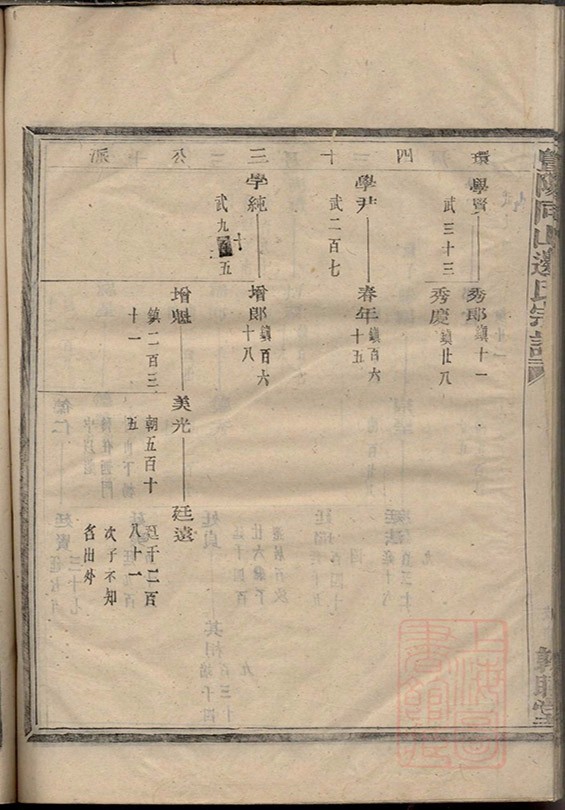 暨陽同山邊氏宗譜
敦睦堂
環四十三公派
學賢
武三十三
秀郎
鎮十一
秀慶
鎮廿八
學尹
武二百七
春年
鎮百六十五
學純
武九十五
增郎
鎮百六十八
增魁
鎮二百三十一
美光
朝五百十五
廷遠
廷千二百八十一
次子不知名出外
上海圖書館藏